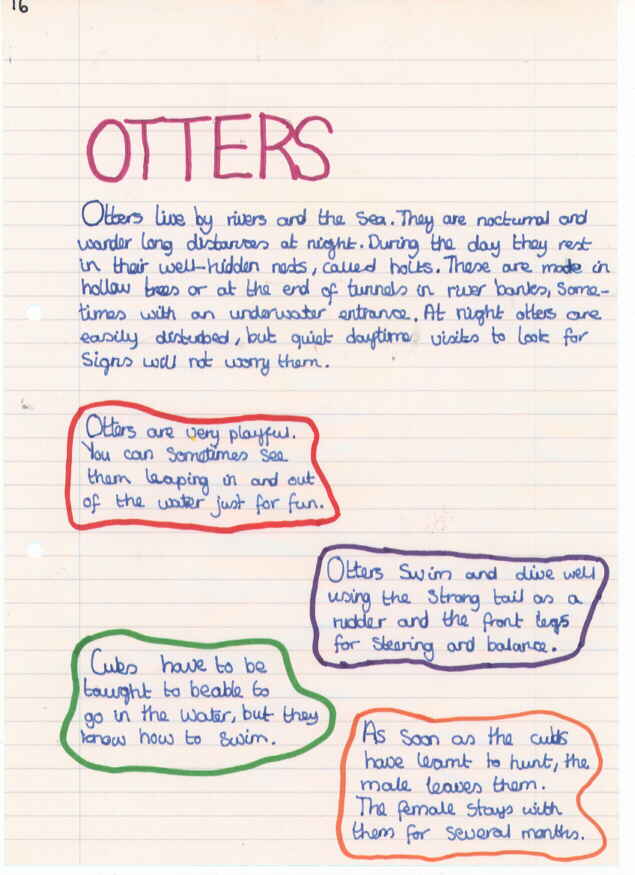 16
OTTERS
Otters live by rivers and the Sea. They are nocturnal and
wander long distances at night. During the day they rest
in their well-hidden nests, called holts. These are made in
hollow trees or at the end of tunnels in river banks, Some-
times with an underwater entrance. At night otters are
easily disturbed, but quiet daytime visits to look for
Signs will not worry them.
Otters are very playful.
You can Sometimes See
them leaping in and out
of the water just for fun.
Otters Swim and dive well
using the Strong tail as a
rudder and the front legs
for Steering and balance.
Cubs have to be
taught to beable to
go in the water, but they
know how to Swim.
As Soon as the cubs
have learnt to hunt, the
male leaves them.
The female Stays with
them for Several months.